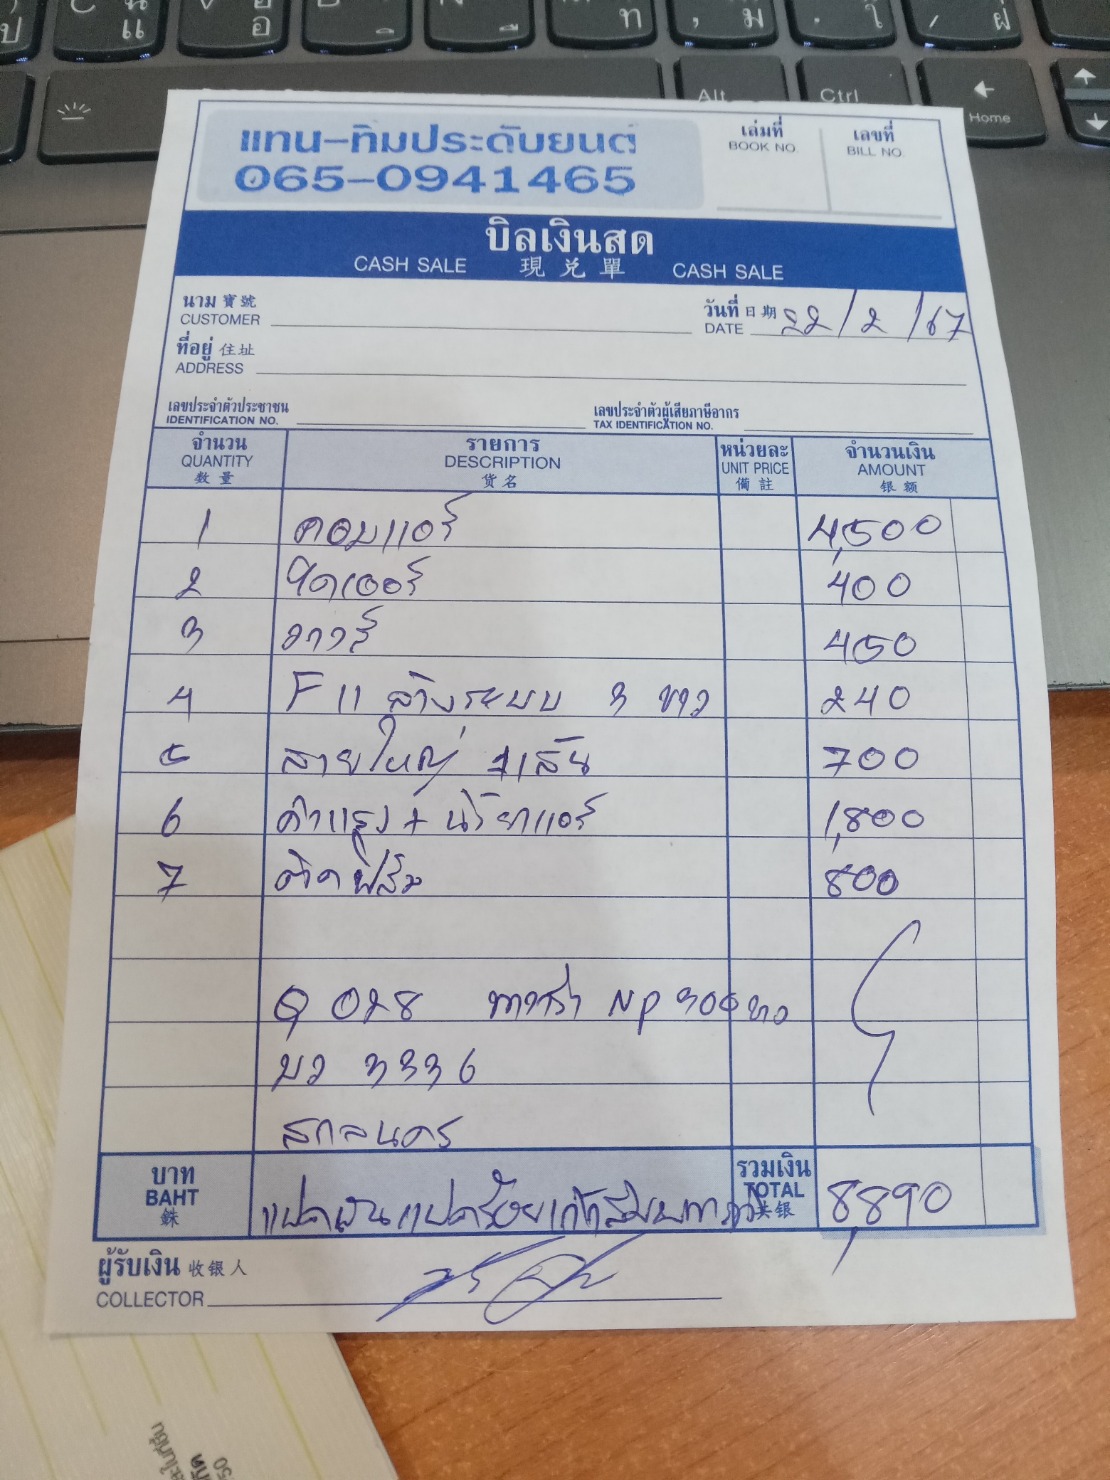 Alt
Ctrl
Home
แทน-ทิมประดับยนต์
065-0941465
เล่มที่
BOOK NO.
เลขที่
BILL NO.
บิลเงินสด
CASH SALE 現兌單 CASH SALE
นาม 寶號
CUSTOMER
วันที่ 日期 22/2/67
DATE
ที่อยู่ 住址
ADDRESS
เลขประจำตัวประชาชน
IDENTIFICATION NO.
เลขประจำตัวผู้เสียภาษีอากร
TAX IDENTIFICATION NO.
จำนวน รายการ หน่วยละ จำนวนเงิน
QUANTITY DESCRIPTION UNIT PRICE AMOUNT
數量 货名 備註 银额
1 คอมแอร์ 4,500
2 400
3 วาวส์ 450
4 F11 ล้างระบบ 3 ขวด 240
5 สายใหญ่ 1เส้น 700
6 ค่าแรง + น้ำยาแอร์ 1,800
7 ติดฟิล์ม 800
Q 028 นาวาร่า NP 300 ขาว
บว 3336
สกลนคร
บาท
BAHT
銖
แปดพันแปดร้อยเก้าสิบบาทถ้วน
รวมเงิน
TOTAL
共银
8,890
ผู้รับเงิน 收银人
COLLECTOR